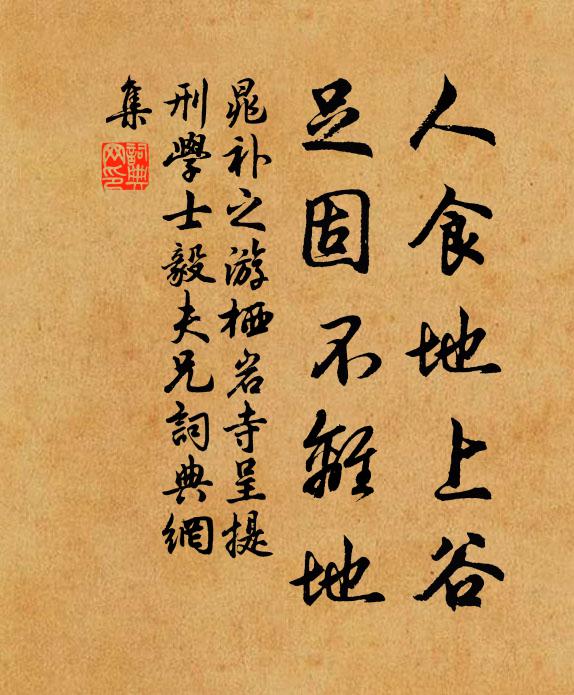 人食地上谷
足固不離地
晁补之游栖岩寺呈提
刑學士毅夫兄詞典網
集
詞典網印